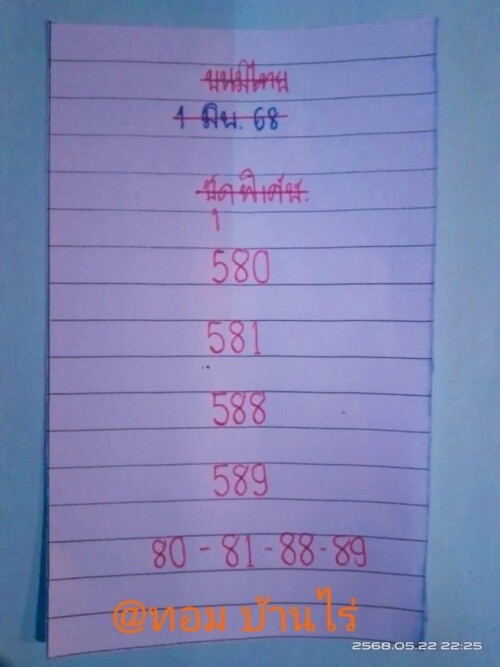 บนมีไทย
1 มิย. 68
ชุดพิเศษ.
580
581
588
589
80 - 81 - 88 - 89
@ทอม บ้านไร่
2568.05.22 22:25